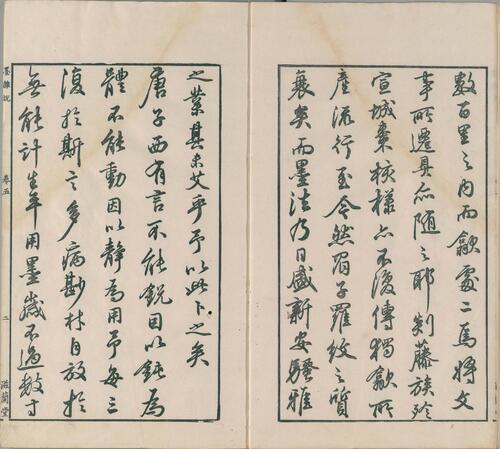 數百里之內而歙處二焉將文
事所遷具亦随之耶剡藤族殄
宣城棗核樣亦不復傳獨歙所
產流行至今然眉子羅紋之質
衰矣而墨法乃日盛新安騷雅
之業其未艾乎予以此卜之矣
唐子西有言不能銳因以鈍為
體不能動因以靜為用予每三
復於斯言多病尠材自放於
無能計生年用墨歲不過數寸
墨雜說
卷五
二
滋蘭堂